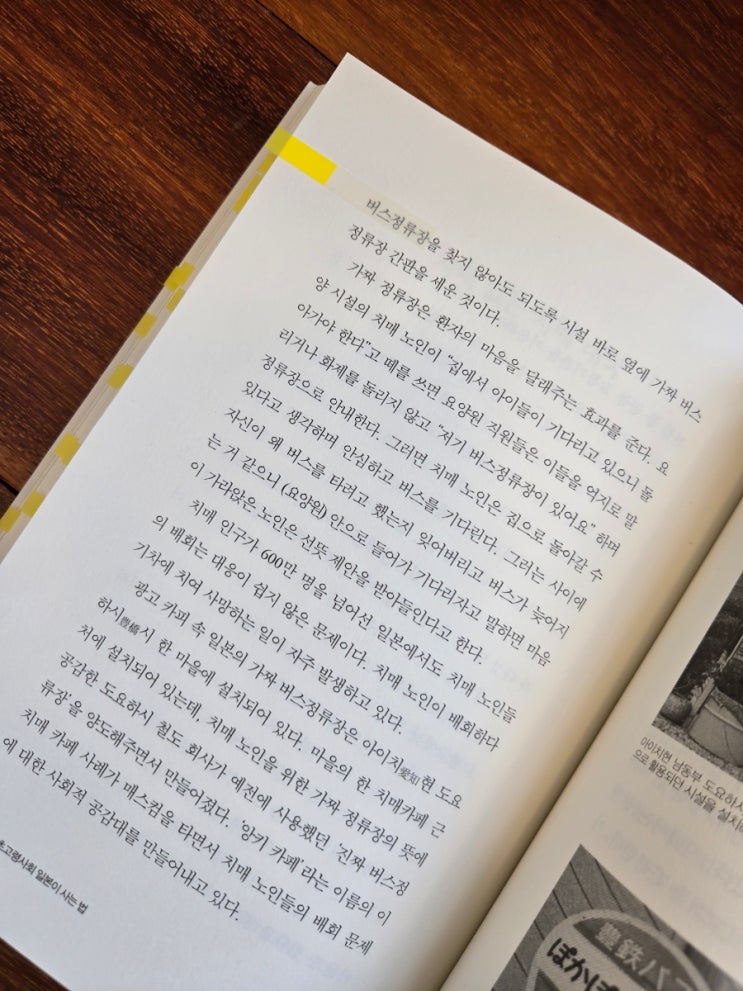 버스정류장을 찾지 않아도 되도록 시설 바로 옆에 가짜 버스
정류장 간판을 세운 것이다.
가짜 정류장은 환자의 마음을 달래주는 효과를 준다. 요
양 시설의 치매 노인이 “집에서 아이들이 기다리고 있으니 돌
아가야 한다”고 떼를 쓰면 요양원 직원들은 이들을 억지로 말
리거나 화제를 돌리지 않고 “저기 버스정류장이 있어요” 하며
정류장으로 안내한다. 그러면 치매 노인은 집으로 돌아갈 수
있다고 생각하며 안심하고 버스를 기다린다. 그러는 사이에
자신이 왜 버스를 타려고 했는지 잊어버리고 버스가 늦어지
는 거 같으니 (요양원) 안으로 들어가 기다리자고 말하면 마음
이 가라앉은 노인은 선뜻 제안을 받아들인다고 한다.
치매 인구가 600만 명을 넘어선 일본에서도 치매 노인들
의 배회는 대응이 쉽지 않은 문제이다. 치매 노인이 배회하다
기차에 치여 사망하는 일이 자주 발생하고 있다.
광고 카피 속 일본의 가짜 버스정류장은 아이치愛知현 도요
하시豊橋시 한 마을에 설치되어 있다. 마을의 한 치매카페 근
처에 설치되어 있는데, 치매 노인을 위한 가짜 정류장의 뜻에
공감한 도요하시 철도 회사가 예전에 사용했던 ‘진짜 버스정
류장’을 양도해주면서 만들어졌다. ‘앙키 카페’라는 이름의 이
치매 카페 사례가 매스컴을 타면서 치매 노인들의 배회 문제
에 대한 사회적 공감대를 만들어내고 있다.
초고령사회 일본이 사는 법
아이치현 남동부 도요하시
으로 활용되던 시설을 설치
豊鉄バス
ぽかぽ